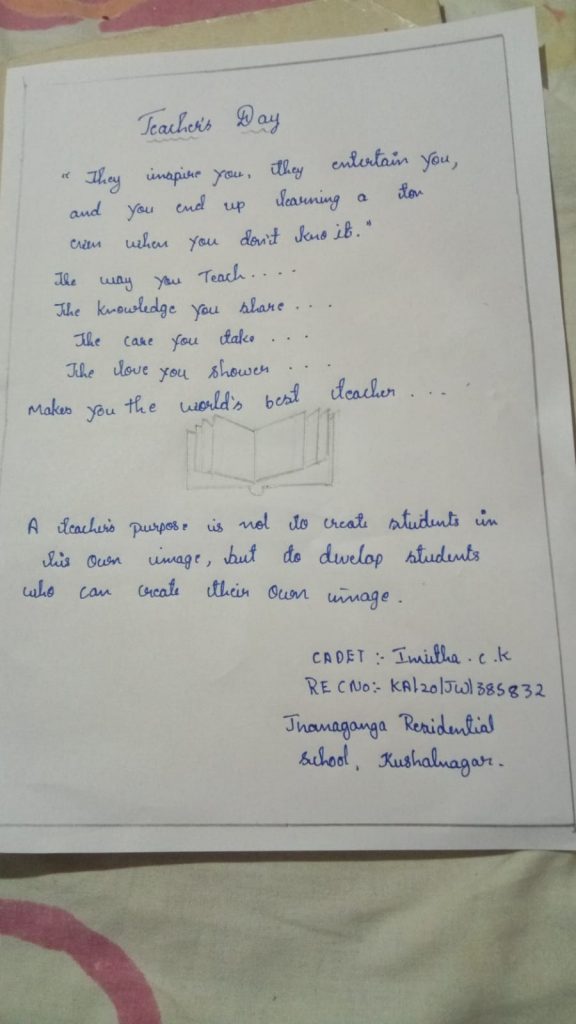 Teacher's Day
"They inspire you, they entertain you,
and you end up learning a ton
even when you don't kno it."
The way you Teach....
The knowledge you share ...
The care you take ...
The love you shower ...
Makes you the world's best teacher ...
A teacher's purpose is not to create students in
his own image, but to develop students
who can create their own image.
CADET :- Imitha . C . K
REC NO:- KA/20/JW/385832
Jnanaganga Residential
school, Kushalnagar.